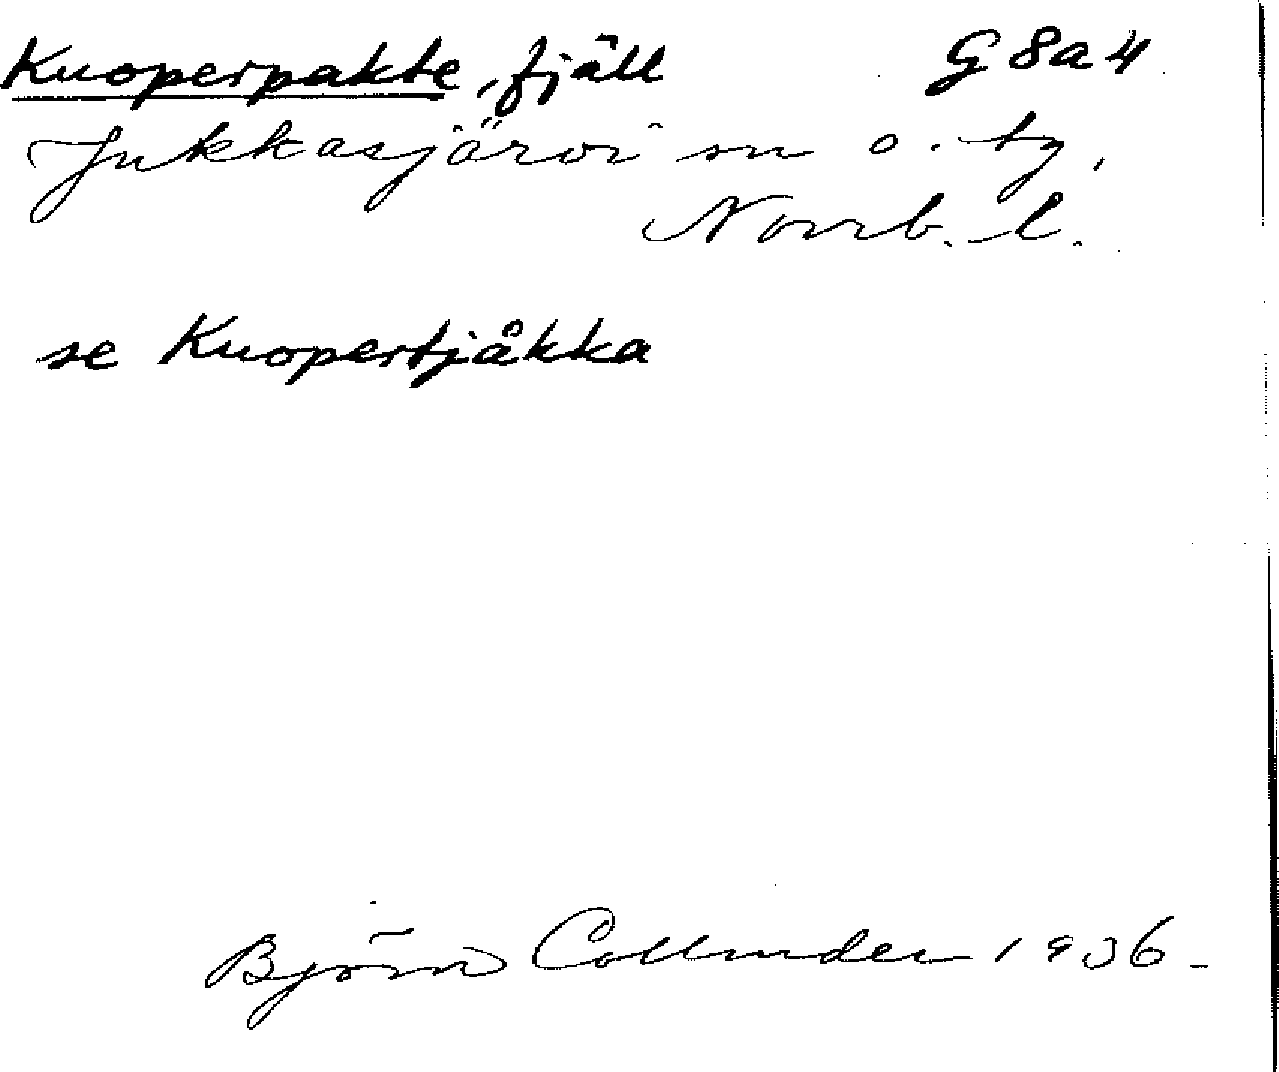 Kuoperpakte, fjäll G 8a 4
Jukkasjärvi sn o. tg,
Norrb. l.
se Kuopertjåkka
Björn Collinder 1936